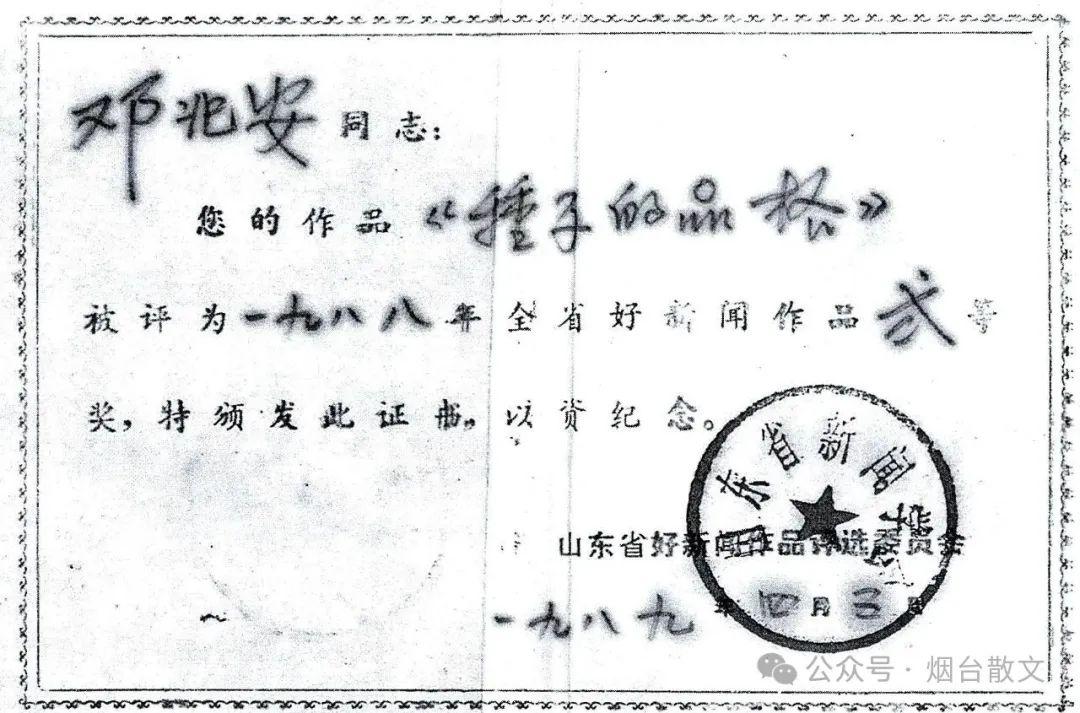 邓兆安同志：
您的作品《種子的品格》
被评为一九八八年全省好新闻作品贰等
奖，特颁发此证书，以资纪念。
山东省新闻学会
山东省好新闻作品评选委员会
一九八九年四月三日
公众号·烟台散文